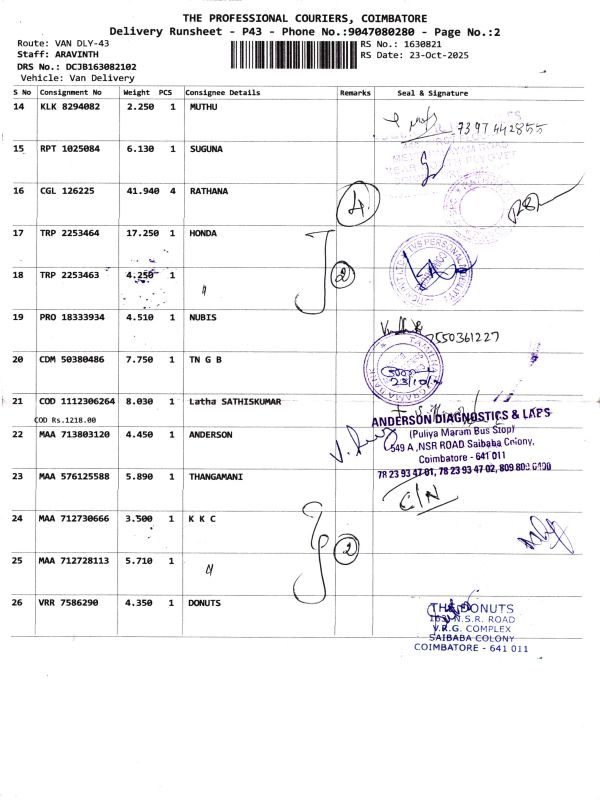 THE PROFESSIONAL COURIERS, COIMBATORE
Delivery Runsheet - P43 - Phone No.:9047080280 - Page No.:2
Route: VAN DLY-43
RS No.: 1630821
Staff: ARAVINTH
RS Date: 23-Oct-2025
DRS No.: DCJB163082102
Vehicle: Van Delivery
S No Consignment No Weight PCS Consignee Details Remarks Seal & Signature
14 KLK 8294082 2.250 1 MUTHU
7397442855
15 RPT 1025084 6.130 1 SUGUNA
16 CGL 126225 41.940 4 RATHANA
4
17 TRP 2253464 17.250 1 HONDA
2
18 TRP 2253463 4.250 1 "
19 PRO 18333934 4.510 1 NUBIS
2550361227
20 CDM 50380486 7.750 1 TN G B
21 COD 1112306264 8.030 1 Latha SATHISKUMAR
COD Rs.1218.00
22 MAA 713803120 4.450 1 ANDERSON
ANDERSON DIAGNOSTICS & LABS
(Puliya Maram Bus Stop)
549 A ,NSR ROAD Saibaba Colony,
Coimbatore - 641 011
78 23 93 47 01, 78 23 93 47 02, 809 800 6400
23 MAA 576125588 5.890 1 THANGAMANI
C/N
24 MAA 712730666 3.500 1 K K C
2
25 MAA 712728113 5.710 1 "
26 VRR 7586290 4.350 1 DONUTS
THE DONUTS
163, N.S.R. ROAD
V.R.G. COMPLEX
SAIBABA COLONY
COIMBATORE - 641 011